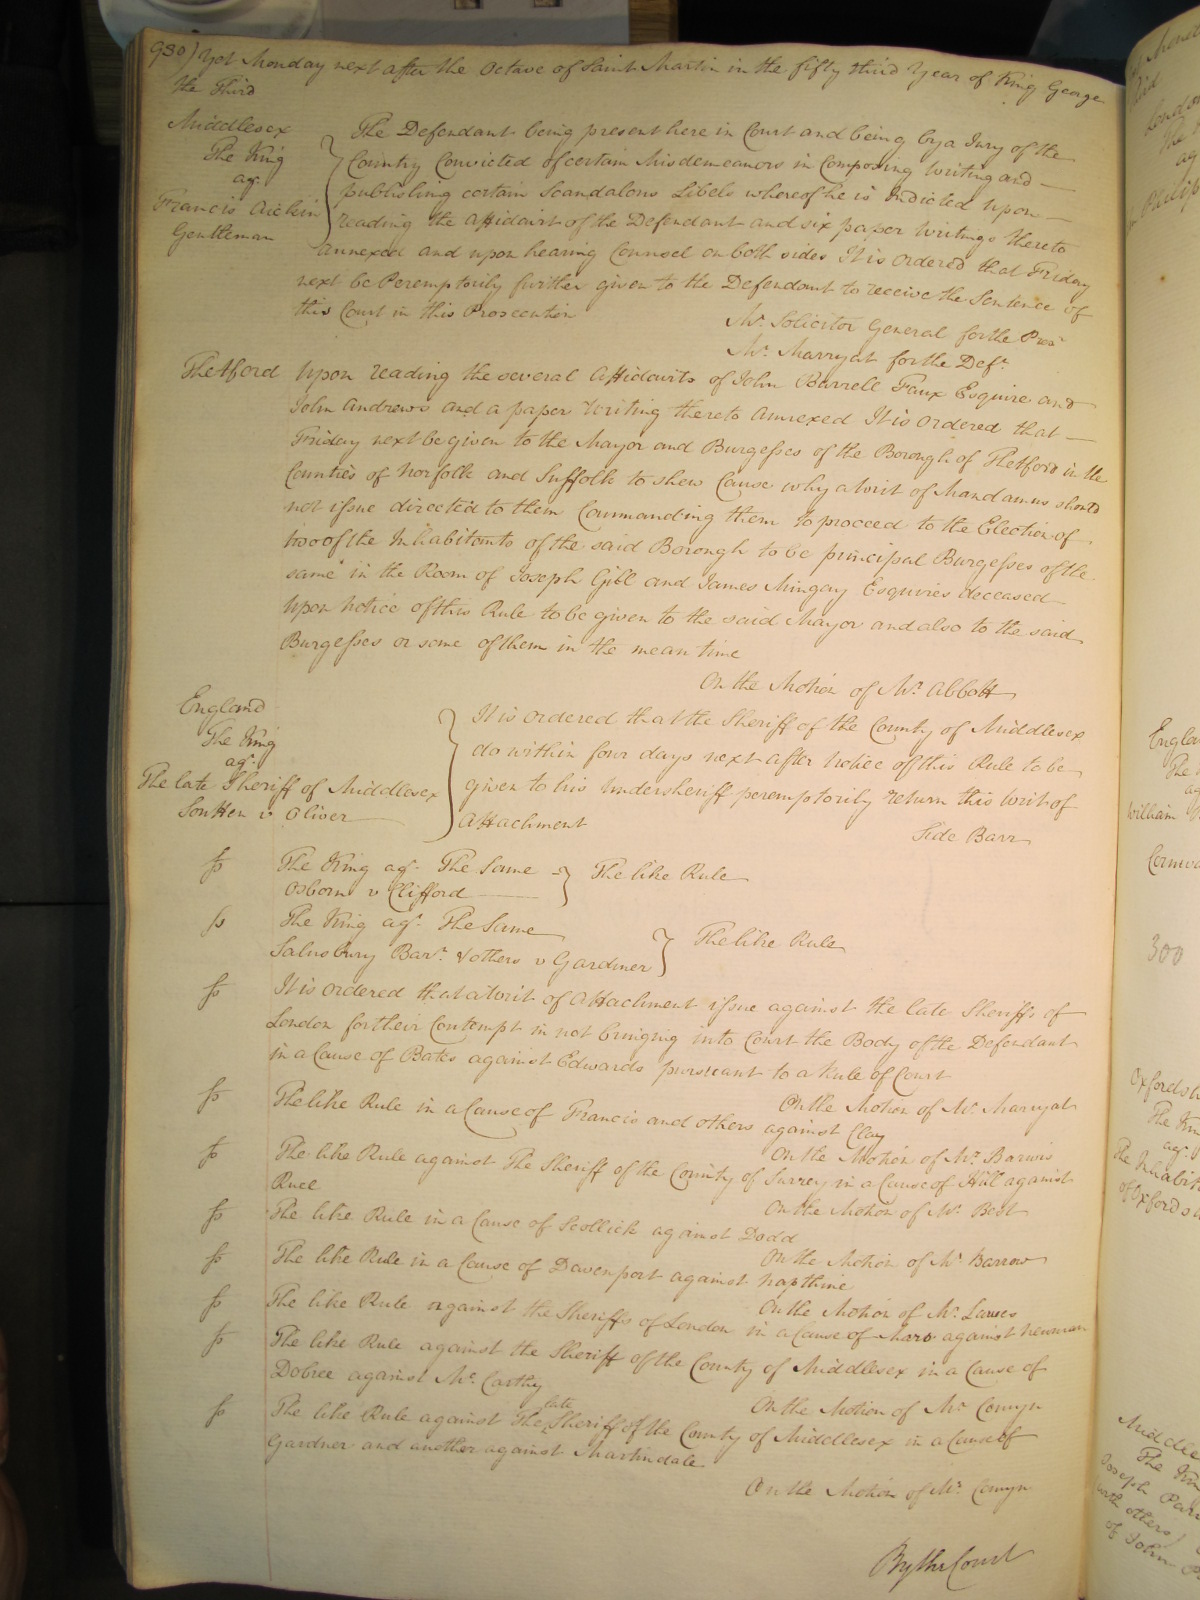 930) Yet Monday next after the Octave of Saint Martin in the fifty third Year of King George
the Third
Middlesex
The King
agt.
Francis Aickin
Gentleman
The Defendant being present here in Court and being by a Jury of the
Country Convicted of certain Misdemeanors in Composing Writing and
publishing certain Scandalous Libels whereof he is Indicted Upon
reading the Affidavit of the Defendant and six paper Writings thereto
annexed and upon hearing Counsel on both sides It is ordered that Friday
next be Peremptorily further given to the Defendant to receive the Sentence of
this Court in this Prosecution
Mr. Solicitor General for the Pros
Mr. Marryat for the Deft.
Thetford Upon reading the several Affidavits of John Burrell Faux Esquire and
John Andrews and a paper Writing thereto Annexed It is ordered that
Friday next be given to the Mayor and Burgesses of the Borough of Thetford in the
Counties of Norfolk and Suffolk to shew Cause why a Writ of Mandamus should
not issue directed to them Commanding them to proceed to the Election of
two of the Inhabitants of the said Borough to be principal Burgesses of the
same in the Room of Joseph Gill and James Mingay Esquires deceased
Upon Notice of this Rule to be given to the said Mayor and also to the said
Burgesses or some of them in the mean time
On the Motion of Mr. Abbott
England
The King
agt.
The late Sheriff of Middlesex
Soutten v Oliver
It is ordered that the Sheriff of the County of Middlesex
do within four days next after Notice of this Rule to be
given to his Undersheriff peremptorily return this Writ of
Attachment
Side Barr
The King agt. The Same
Osborn v Clifford
The like Rule
The King agt. The Same
Salusbury Bart. & others v Gardiner
The like Rule
It is ordered that a Writ of Attachment issue against the late Sheriffs of
London for their Contempt in not bringing into Court the Body of the Defendant
in a Cause of Bates against Edwards pursuant to a Rule of Court
On the Motion of Mr. Marryat
The like Rule in a Cause of Francis and others against Clay
On the Motion of Mr. Barwis
The like Rule against The Sheriff of the County of Surrey in a Cause of Hill against
Ruce
On the Motion of Mr. Best
The like Rule in a Cause of Scollick against Dodd
On the Motion of Mr. Barrow
The like Rule in a Cause of Davenport against Napthine
On the Motion of Mr. Lawes
The like Rule against the Sheriffs of London in a Cause of against Newman
The like Rule against the Sheriff of the County of Middlesex in a Cause of
Dobree against Mc. Carthy
On the Motion of Mr Comyn
The like Rule against The late Sheriff of the County of Middlesex in a Cause of
Gardner and another against Martindale
On the Motion of Mr. Comyn
By the Court
300